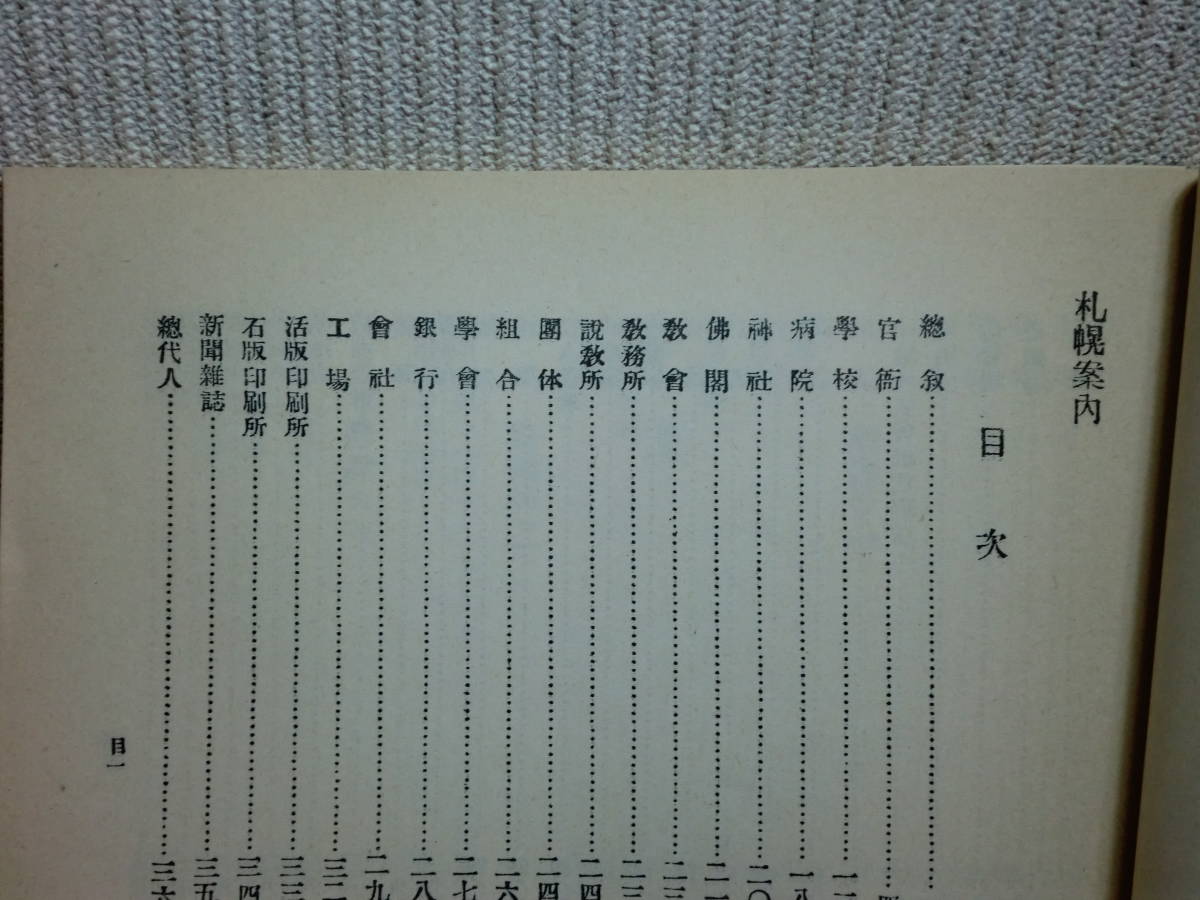 札幌案內
目次
總叙
官衙
學校
病院 一八
神社 二〇
佛閣
敎會
敎務所
說敎所 二四
團体 二四
組合 二六
學會 二七
銀行 二八
會社 二九
工場
活版印刷所 三三
石版印刷所 三四
新聞雜誌 三五
總代人 三六
目一